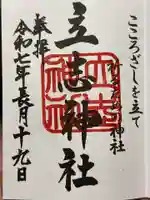 こころざしを立て
神社
立志神社
奉拝
令和七年長月十九日